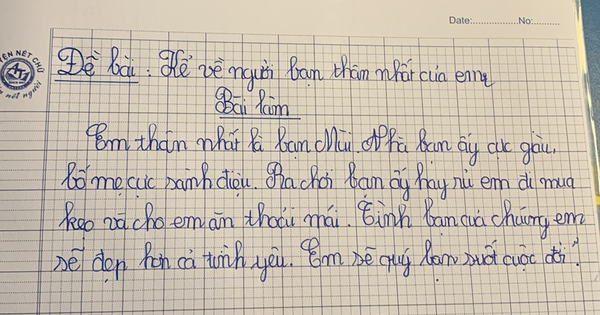 Date:.................No:.........
YỆN NÉT CHỮ
n nết người
Đề bài: Kể về người bạn thân nhất của em
Bài làm
Em thân nhất là bạn Mùi. Nhà bạn ấy cực giàu,
bố mẹ cực sành điệu. Ra chơi bạn ấy hay rủ em đi mua
kẹo và cho em ăn thoải mái. Tình bạn của chúng em
sẽ đẹp hơn cả tình yêu. Em sẽ quý bạn suốt cuộc đời."